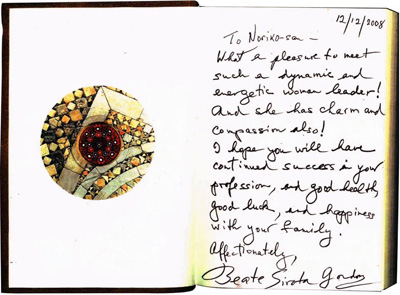 12/12/2008
To Noriko-san –
What a pleasure to meet
such a dynamic and
energetic woman leader!
And she has charm and
compassion also!
I hope you will have
continued success in your
profession, and good health,
good luck, and happiness
with your family.
Affectionately,
Beate Sirota Gordon